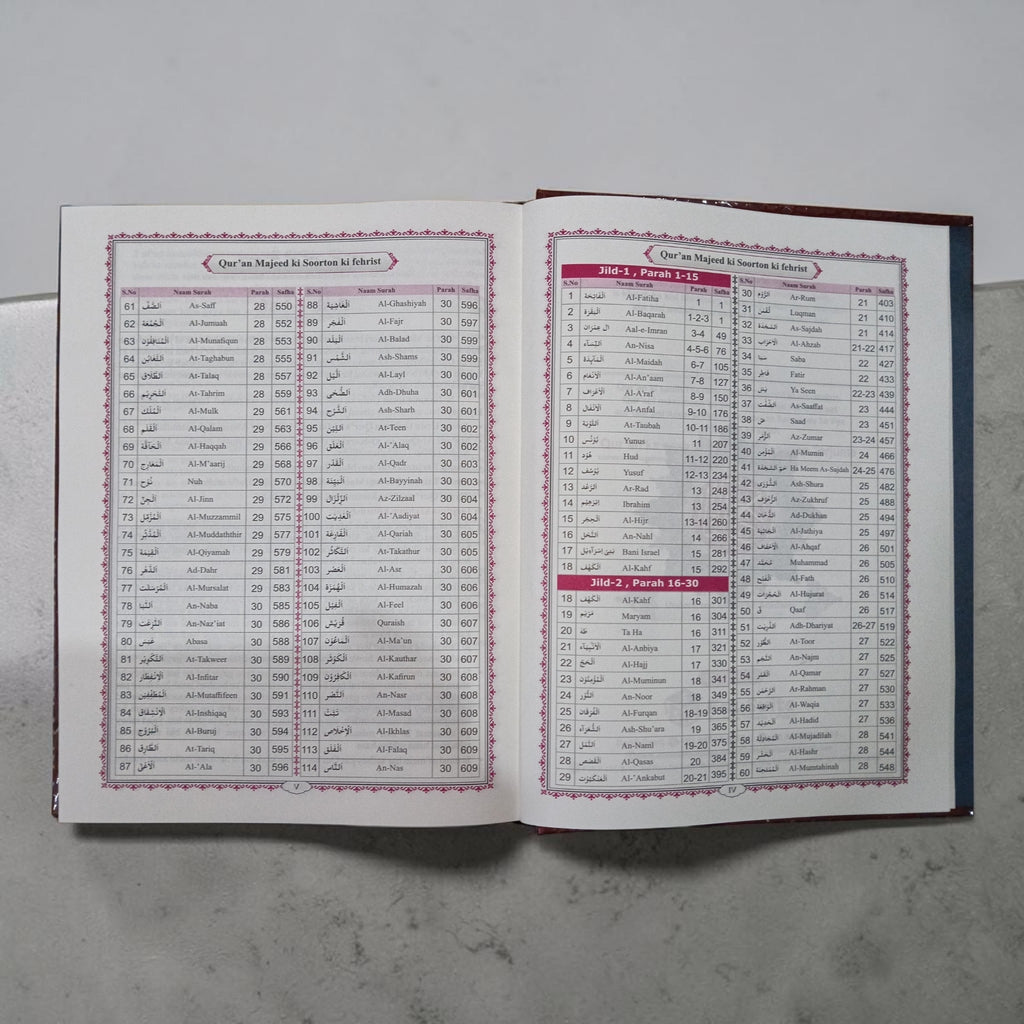 Qur'an Majeed ki Soorton ki fehrist
Jild-1 , Parah 1-15
S.No Naam Surah Parah Safha
1 الْفَاتِحَة Al-Fatiha 1 1
2 الْبَقَرَة Al-Baqarah 1-2-3 1
3 اٰلِ عِمْرَان Aal-e-Imran 3-4 49
4 النِّسَآء An-Nisa 4-5-6 76
5 الْمَآئِدَة Al-Maidah 6-7 105
6 الْاَنْعَام Al-An'aam 7-8 127
7 الْاَعْرَاف Al-A'raf 8-9 150
8 الْاَنْفَال Al-Anfal 9-10 176
9 التَّوْبَة At-Taubah 10-11 186
10 يُوْنُس Yunus 11 207
11 هُوْد Hud 11-12 220
12 يُوْسُف Yusuf 12-13 234
13 الرَّعْد Ar-Rad 13 248
14 اِبْرٰهِيْم Ibrahim 13 254
15 الْحِجْر Al-Hijr 13-14 260
16 النَّحْل An-Nahl 14 266
17 بَنِيْٓ اِسْرَآءِيْل Bani Israel 15 281
18 الْكَهْف Al-Kahf 15 292
Jild-2 , Parah 16-30
18 الْكَهْف Al-Kahf 16 301
19 مَرْيَم Maryam 16 304
20 طٰهٰ Ta Ha 16 311
21 الْاَنْبِيَآء Al-Anbiya 17 321
22 الْحَجّ Al-Hajj 17 330
23 الْمُؤْمِنُوْن Al-Muminun 18 341
24 النُّوْر An-Noor 18 349
25 الْفُرْقَان Al-Furqan 18-19 358
26 الشُّعَرَآء Ash-Shu'ara 19 365
27 النَّمْل An-Naml 19-20 375
28 الْقَصَص Al-Qasas 20 384
29 الْعَنْكَبُوْت Al-'Ankabut 20-21 395
S.No Naam Surah Parah Safha
30 الرُّوْم Ar-Rum 21 403
31 لُقْمٰن Luqman 21 410
32 السَّجْدَة As-Sajdah 21 414
33 الْاَحْزَاب Al-Ahzab 21-22 417
34 سَبَا Saba 22 427
35 فَاطِر Fatir 22 433
36 يٰسٓ Ya Seen 22-23 439
37 الصّٰٓفّٰت As-Saaffat 23 444
38 صٓ Saad 23 451
39 الزُّمَر Az-Zumar 23-24 457
40 الْمُؤْمِن Al-Mumin 24 466
41 حٰمٓ السَّجْدَة Ha Meem As-Sajdah 24-25 476
42 الشُّوْرٰى Ash-Shura 25 482
43 الزُّخْرُف Az-Zukhruf 25 488
44 الدُّخَان Ad-Dukhan 25 494
45 الْجَاثِيَة Al-Jathiya 25 497
46 الْاَحْقَاف Al-Ahqaf 26 501
47 مُحَمَّد Muhammad 26 505
48 الْفَتْح Al-Fath 26 510
49 الْحُجُرَات Al-Hujurat 26 514
50 قٓ Qaaf 26 517
51 الذّٰرِيٰت Adh-Dhariyat 26-27 519
52 الطُّوْر At-Toor 27 522
53 النَّجْم An-Najm 27 525
54 الْقَمَر Al-Qamar 27 527
55 الرَّحْمٰن Ar-Rahman 27 530
56 الْوَاقِعَة Al-Waqia 27 533
57 الْحَدِيْد Al-Hadid 27 536
58 الْمُجَادَلَة Al-Mujadilah 28 541
59 الْحَشْر Al-Hashr 28 544
60 الْمُمْتَحِنَة Al-Mumtahinah 28 548
IV
Qur'an Majeed ki Soorton ki fehrist
S.No Naam Surah Parah Safha
61 الصَّفّ As-Saff 28 550
62 الْجُمُعَة Al-Jumuah 28 552
63 الْمُنَافِقُوْن Al-Munafiqun 28 553
64 التَّغَابُن At-Taghabun 28 555
65 الطَّلَاق At-Talaq 28 557
66 التَّحْرِيْم At-Tahrim 28 559
67 الْمُلْك Al-Mulk 29 561
68 الْقَلَم Al-Qalam 29 563
69 الْحَآقَّة Al-Haqqah 29 566
70 الْمَعَارِج Al-M'aarij 29 568
71 نُوْح Nuh 29 570
72 الْجِنّ Al-Jinn 29 572
73 الْمُزَّمِّل Al-Muzzammil 29 575
74 الْمُدَّثِّر Al-Muddaththir 29 577
75 الْقِيٰمَة Al-Qiyamah 29 579
76 الدَّهْر Ad-Dahr 29 581
77 الْمُرْسَلٰت Al-Mursalat 29 583
78 النَّبَا An-Naba 30 585
79 النّٰزِعٰت An-Naz'iat 30 586
80 عَبَسَ Abasa 30 588
81 التَّكْوِيْر At-Takweer 30 589
82 الْاِنْفِطَار Al-Infitar 30 590
83 الْمُطَفِّفِيْن Al-Mutaffifeen 30 591
84 الْاِنْشِقَاق Al-Inshiqaq 30 593
85 الْبُرُوْج Al-Buruj 30 594
86 الطَّارِق At-Tariq 30 595
87 الْاَعْلٰى Al-'Ala 30 596
S.No Naam Surah Parah Safha
88 الْغَاشِيَة Al-Ghashiyah 30 596
89 الْفَجْر Al-Fajr 30 597
90 الْبَلَد Al-Balad 30 599
91 الشَّمْس Ash-Shams 30 599
92 الَّيْل Al-Layl 30 600
93 الضُّحٰى Adh-Dhuha 30 601
94 الشَّرْح Ash-Sharh 30 601
95 التِّيْن At-Teen 30 602
96 الْعَلَق Al-'Alaq 30 602
97 الْقَدْر Al-Qadr 30 603
98 الْبَيِّنَة Al-Bayyinah 30 603
99 الزِّلْزَال Az-Zilzaal 30 604
100 الْعٰدِيٰت Al-'Aadiyat 30 604
101 الْقَارِعَة Al-Qariah 30 605
102 التَّكَاثُر At-Takathur 30 605
103 الْعَصْر Al-Asr 30 606
104 الْهُمَزَة Al-Humazah 30 606
105 الْفِيْل Al-Feel 30 606
106 قُرَيْش Quraish 30 607
107 الْمَاعُوْن Al-Ma'un 30 607
108 الْكَوْثَر Al-Kauthar 30 607
109 الْكَافِرُوْن Al-Kafirun 30 608
110 النَّصْر An-Nasr 30 608
111 تَبَّتْ Al-Masad 30 608
112 الْاِخْلَاص Al-Ikhlas 30 609
113 الْفَلَق Al-Falaq 30 609
114 النَّاس An-Nas 30 609
V